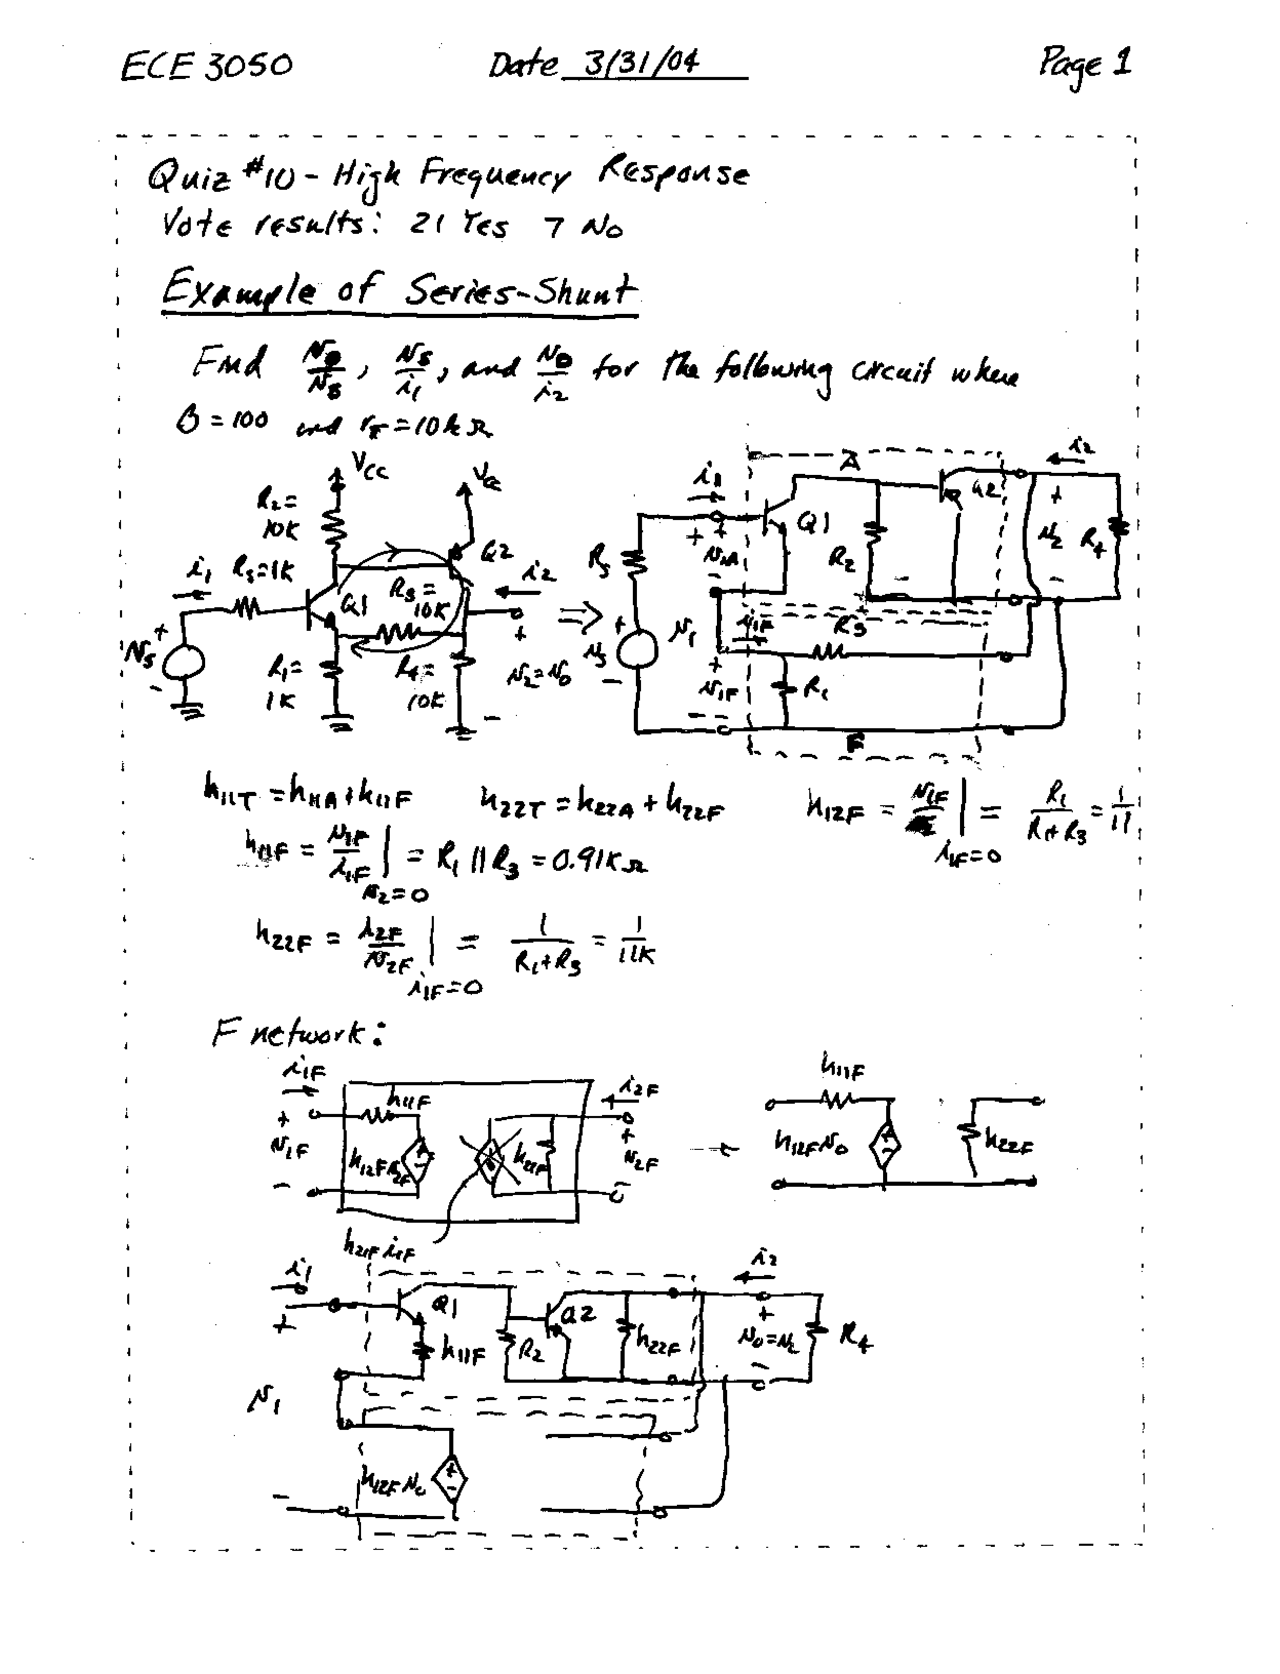 ECE 3050 Date 3/31/04 Page 1
Quiz #10 - High Frequency Response
Vote results: 21 Yes 7 No
Example of Series-Shunt
Find vo/vs, vs/i1, and vo/i2 for the following circuit where
β = 100 and rπ = 10kΩ
VCC
R2 = 10K
Q2
i1 RS=1K
Q1
R3 = 10K
i2
vs
+
-
R1 = 1K
R4 = 10K
v2 = vo
+
-
⇒
A
i1
Q1
Q2
i2
RS
+ v1A -
R2
+ v2 -
R4
vs
v1
i1F
R3
+ v1F -
R1
F
h11T = h11A + h11F h22T = h22A + h22F h12F = v1F | i1F=0 = R1/(R1+R3) = 1/11
h11F = v1F/i1F | v2=0 = R1 || R3 = 0.91KΩ
h22F = i2F/v2F | i1F=0 = 1/(R1+R3) = 1/11K
F network:
i1F
h11F
i2F
+ v1F -
h12F v2F
h22F
+ v2F -
h21F i1F
h11F
h12F vo
h22F
i1
Q1
Q2
i2
+
h11F
R2
h22F
+ vo=v2 -
R4
v1
h12F vo
-